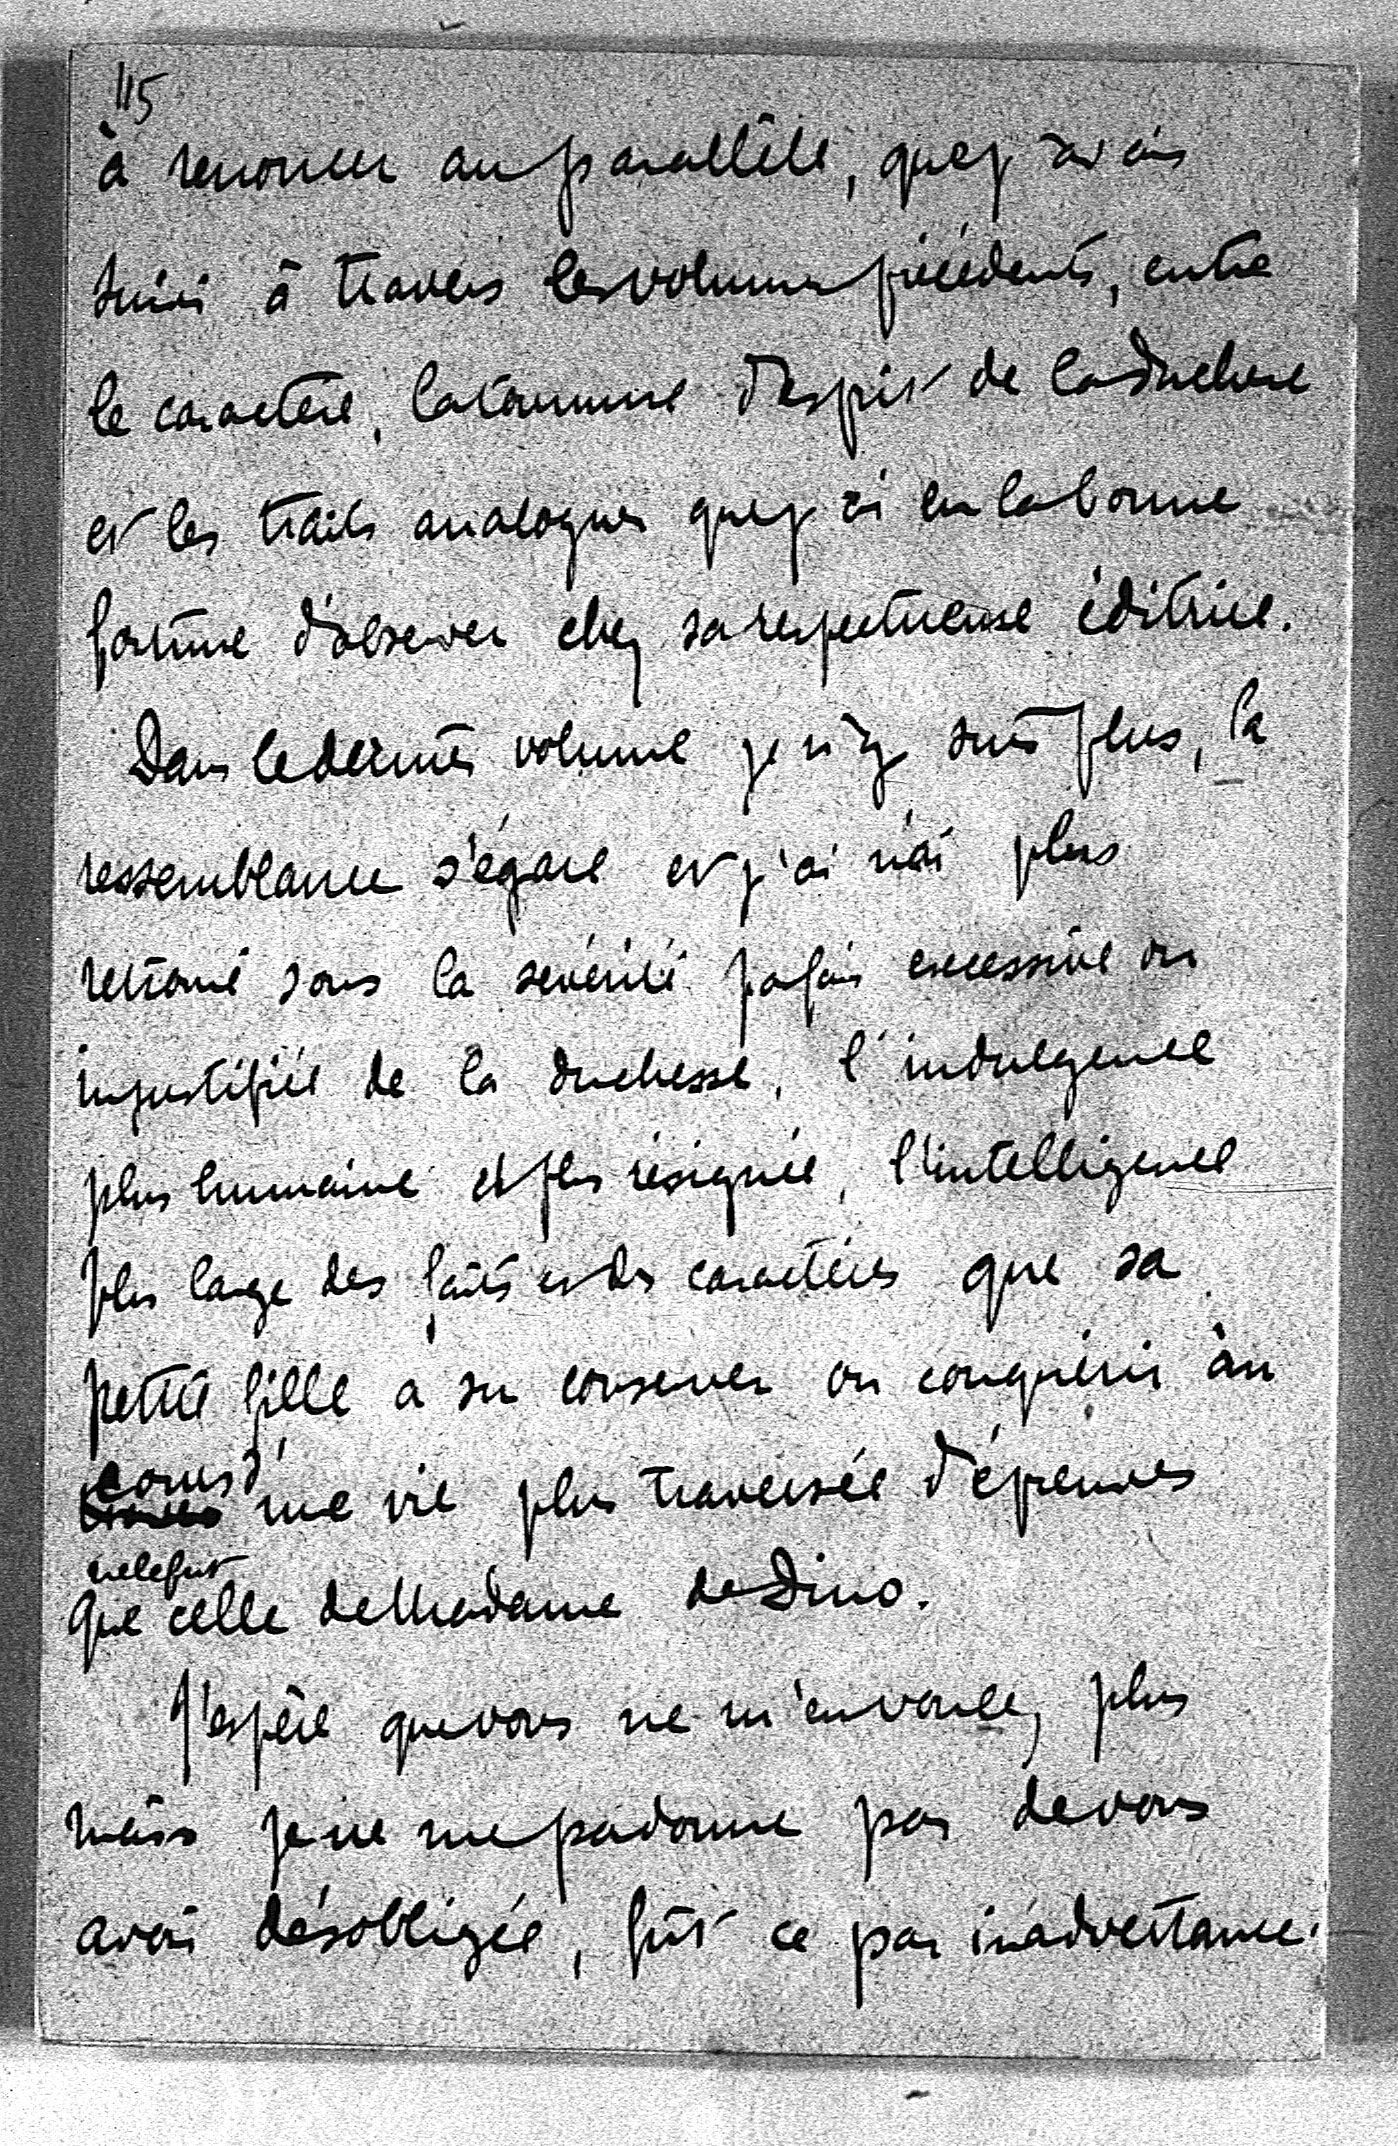 115
à renoncer au parallèle, que j'avais
suivi à travers les volumes précédents, entre
le caractère, la tournure d'esprit de la duchesse
et les traits analogues que j'ai eu la bonne
fortune d'observer chez sa respectueuse éditrice.
Dans le dernier volume je n'y suis plus, la
ressemblance s'égare et j'ai n'ai plus
retrouvé sous la sévérité parfois excessive ou
injustifiée de la duchesse, l'indulgence
plus humaine et plus résignée, l'intelligence
plus large des faits et des caractères que sa
petite fille a su conserver ou conquérir au
cours d'une vie plus traversée d'épreuves
que ne le fut celle de Madame de Dino.
J'espère que vous ne m'en voulez plus
mais je ne me pardonne pas de vous
avoir désobligée, fût ce par inadvertance.